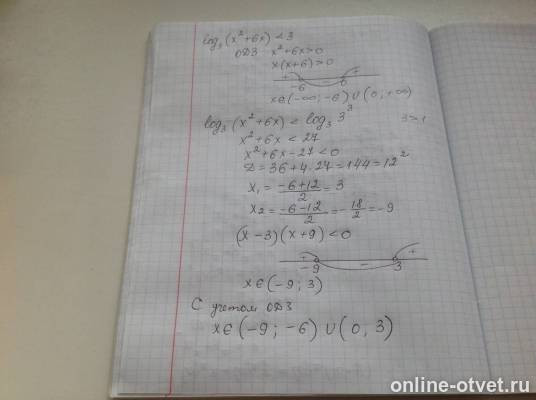 log₃(x²+6x)<3
ОДЗ x²+6x>0
x(x+6)>0
+ -6 - 6 +
x∈(-∞; -6) ∪ (0; +∞)
log₃(x²+6x) < log₃ 3³ 3>1
x²+6x < 27
x²+6x-27<0
D = 36+4·27=144=12²
x₁ = (-6+12)/2 = 3
x₂ = (-6-12)/2 = -18/2 = -9
(x-3)(x+9)<0
+ -9 - 3 +
x∈(-9; 3)
С учетом ОДЗ
x∈(-9; -6) ∪ (0; 3)
online-otvet.ru